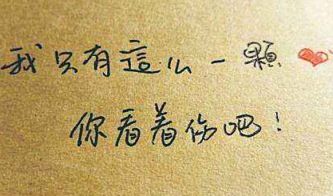 我只有這么一颗❤
你看着伤吧！